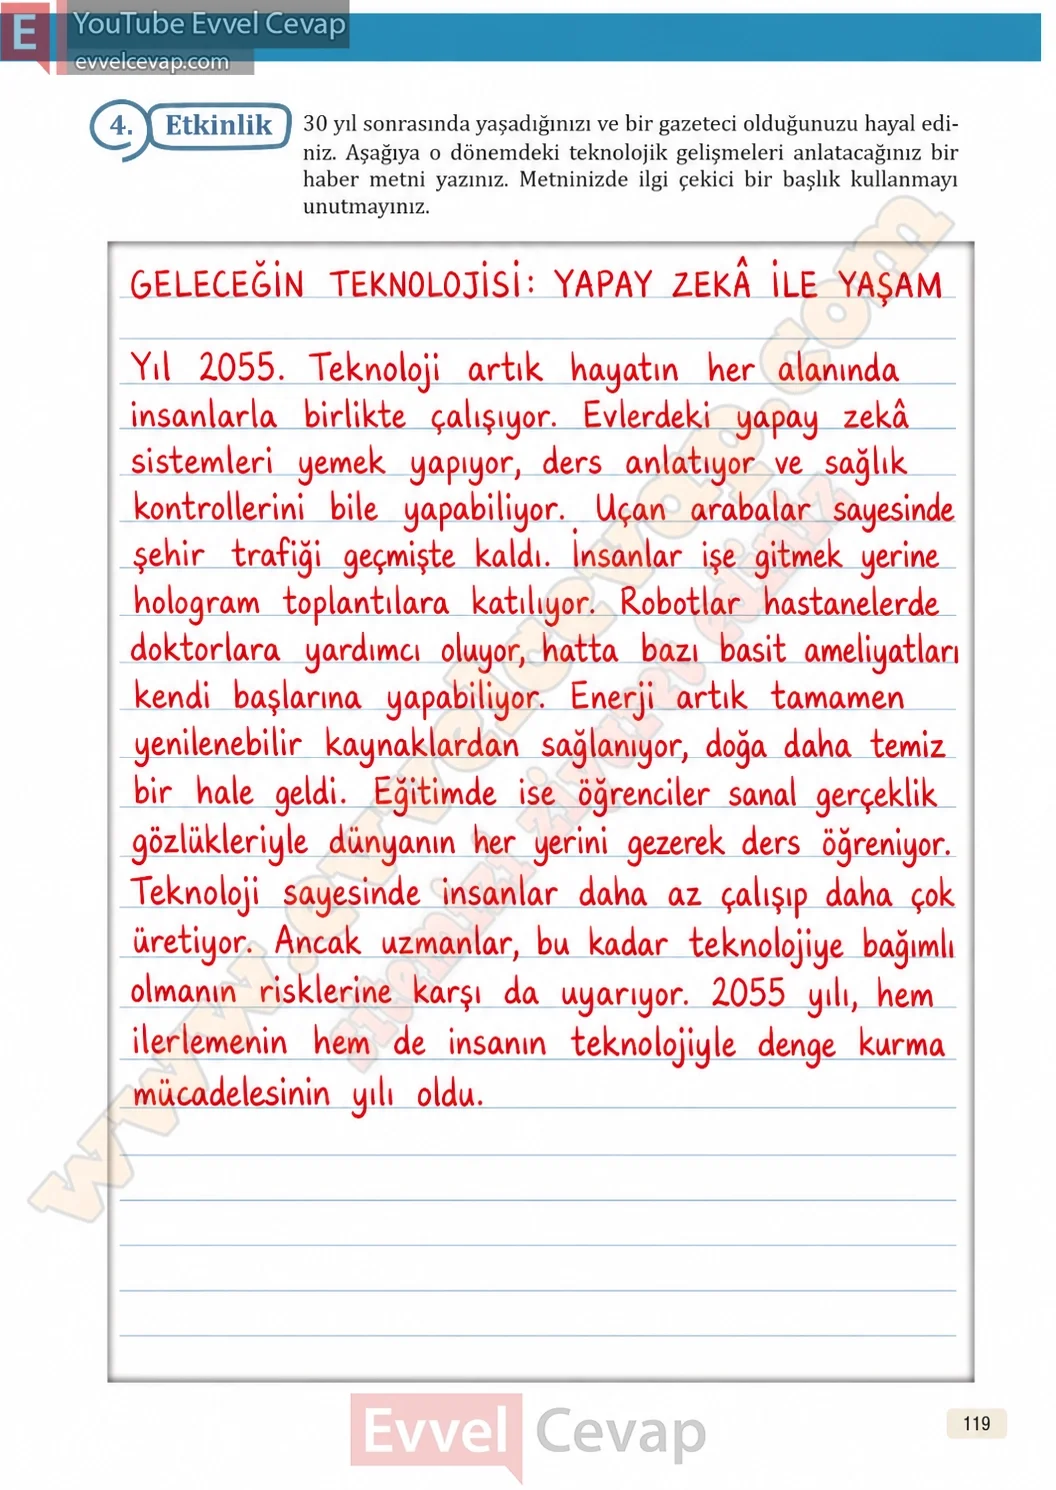 E YouTube Evvel Cevap
evvelcevap.com
4. Etkinlik
30 yıl sonrasında yaşadığınızı ve bir gazeteci olduğunuzu hayal edi-
niz. Aşağıya o dönemdeki teknolojik gelişmeleri anlatacağınız bir
haber metni yazınız. Metninizde ilgi çekici bir başlık kullanmayı
unutmayınız.
GELECEĞİN TEKNOLOJİSİ: YAPAY ZEKÂ İLE YAŞAM
Yıl 2055. Teknoloji artık hayatın her alanında
insanlarla birlikte çalışıyor. Evlerdeki yapay zekâ
sistemleri yemek yapıyor, ders anlatıyor ve sağlık
kontrollerini bile yapabiliyor. Uçan arabalar sayesinde
şehir trafiği geçmişte kaldı. İnsanlar işe gitmek yerine
hologram toplantılara katılıyor. Robotlar hastanelerde
doktorlara yardımcı oluyor, hatta bazı basit ameliyatları
kendi başlarına yapabiliyor. Enerji artık tamamen
yenilenebilir kaynaklardan sağlanıyor, doğa daha temiz
bir hale geldi. Eğitimde ise öğrenciler sanal gerçeklik
gözlükleriyle dünyanın her yerini gezerek ders öğreniyor.
Teknoloji sayesinde insanlar daha az çalışıp daha çok
üretiyor. Ancak uzmanlar, bu kadar teknolojiye bağımlı
olmanın risklerine karşı da uyarıyor. 2055 yılı, hem
ilerlemenin hem de insanın teknolojiyle denge kurma
mücadelesinin yılı oldu.
www.evvelcevap.com
sitemizi ziyaret ediniz
Evvel Cevap
119